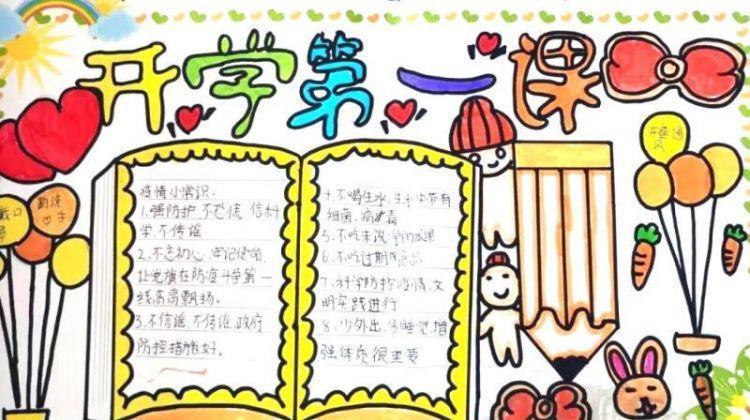 开学第一课
戴口
勤洗
手
开窗通
风
疫情小常识:
1.强防护,不恐慌,信科
学,不传谣
2.不忘初心,牢记使命,
让党旗在防疫斗争第一
线高高飘扬。
3.不信谣,不传谣,政府
防控措施好。
4.不喝生水,生水中带有
细菌,病毒
5.不吃未洗的瓜果
6.不吃过期食品
7.科学防控疫情,文
明实践进行
8.少外出,多睡觉,增
强体质很重要